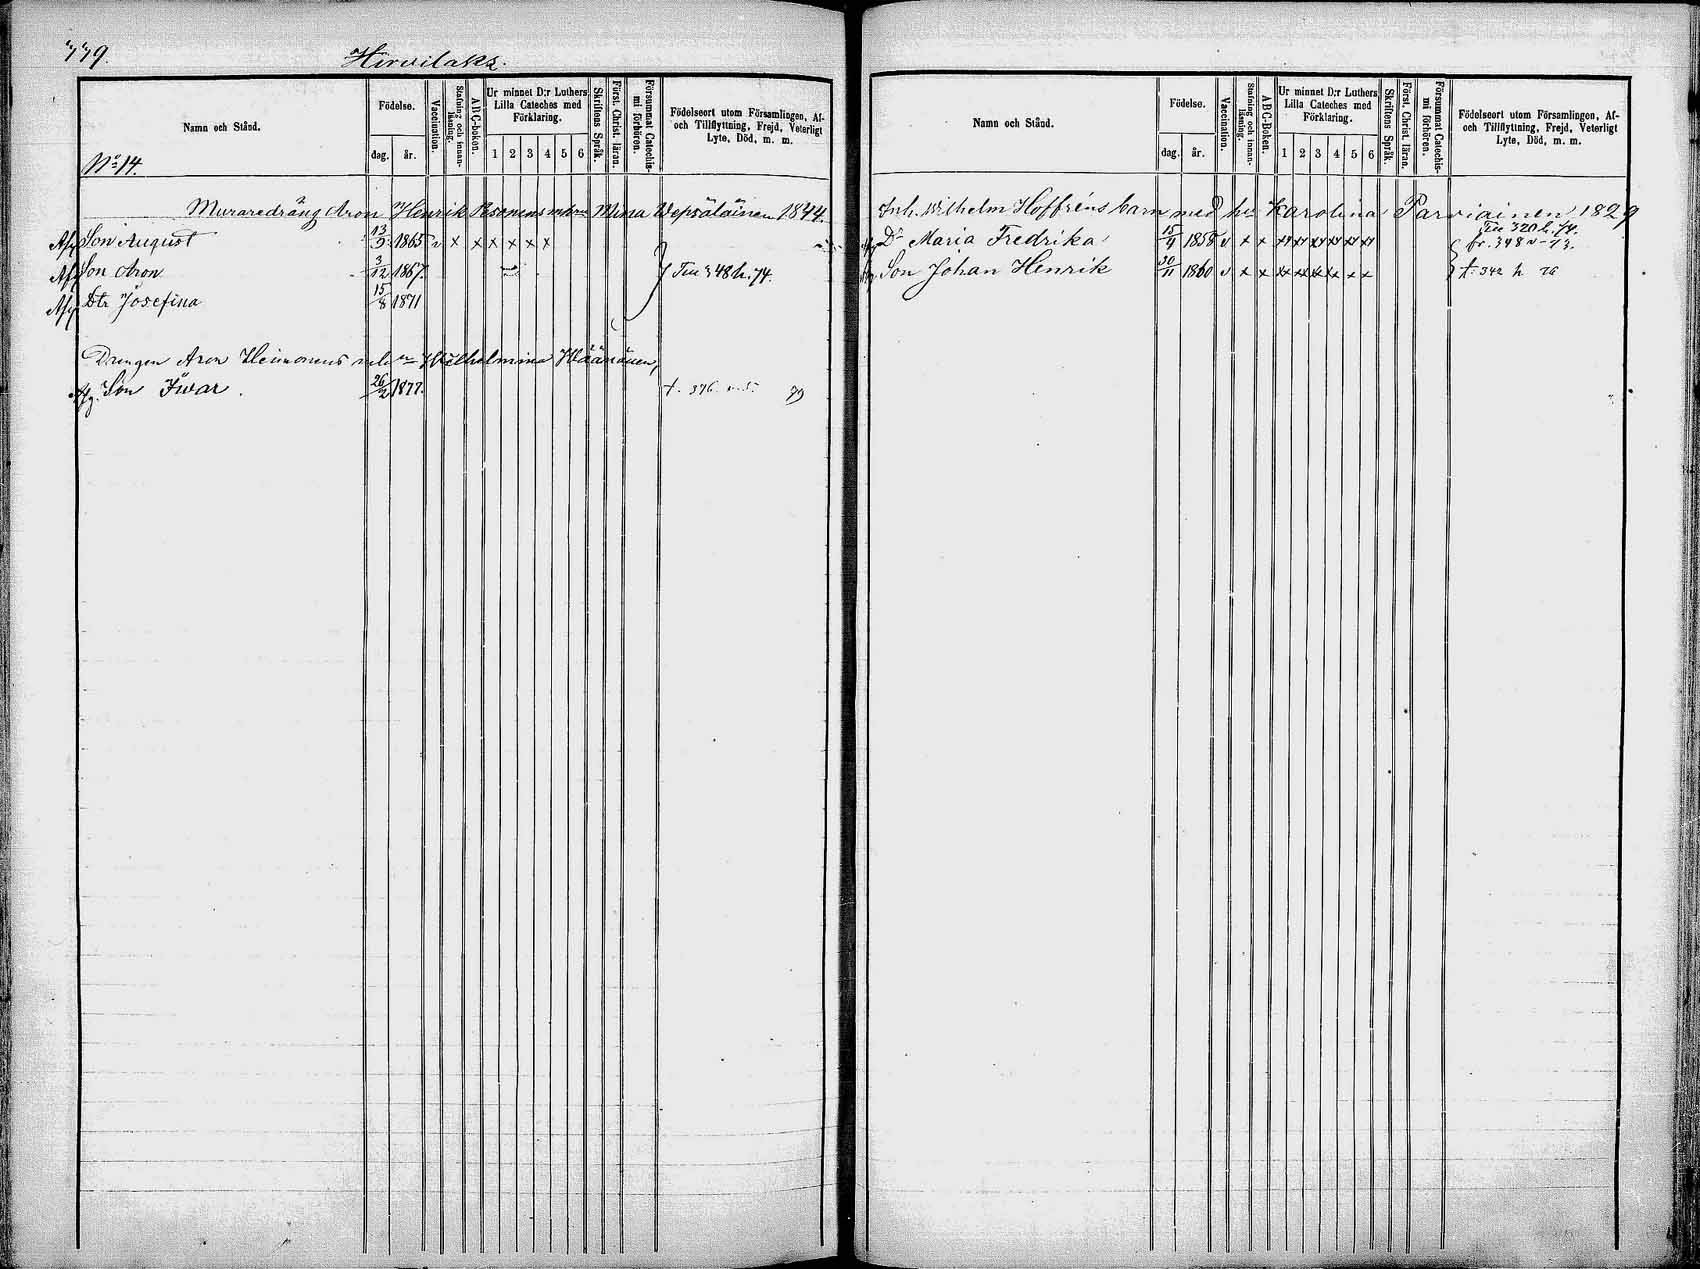 779.
Hirvilaks.
Namn och Stånd.
Födelse.
dag. år.
Vaccination.
Stafning och innan-läsning.
ABC-boken.
Ur minnet D:r Luthers Lilla Cateches med Förklaring.
1 2 3 4 5 6
Skriftens Språk.
Först. Christ. läran.
Försummat Catechis-mi förhören.
Födelseort utom Församlingen, Af-
och Tillflyttning, Frejd, Veterligt
Lyte, Död, m. m.
No 14.
Muraredräng Aron Henrik Pesonens m Mina Wepsäläinen 1844.
Afg Son August 13/9 1865 v x x x x x x
Afg Son Aron 3/12 1867. Tın 348 h. 74.
Afg Dtr Josefina 15/8 1871
Drengen Aron Heimonens Wilhelmina Wäänänen,
Afg. Son Iwar. 26/2 1877. t. 376. 79
Namn och Stånd.
Födelse.
dag. år.
Vaccination.
Stafning och innan-läsning.
ABC-boken.
Ur minnet D:r Luthers Lilla Cateches med Förklaring.
1 2 3 4 5 6
Skriftens Språk.
Först. Christ. läran.
Försummat Catechis-mi förhören.
Födelseort utom Församlingen, Af-
och Tillflyttning, Frejd, Veterligt
Lyte, Död, m. m.
Inh. Wilhelm Hoffréns barn med hu Karolina Parviainen 1829
320 h. 74.
Dr Maria Fredrika 1858 v x x fr. 348 v 73.
Son Johan Henrik 30/11 1860 v x x t. 342 h 76